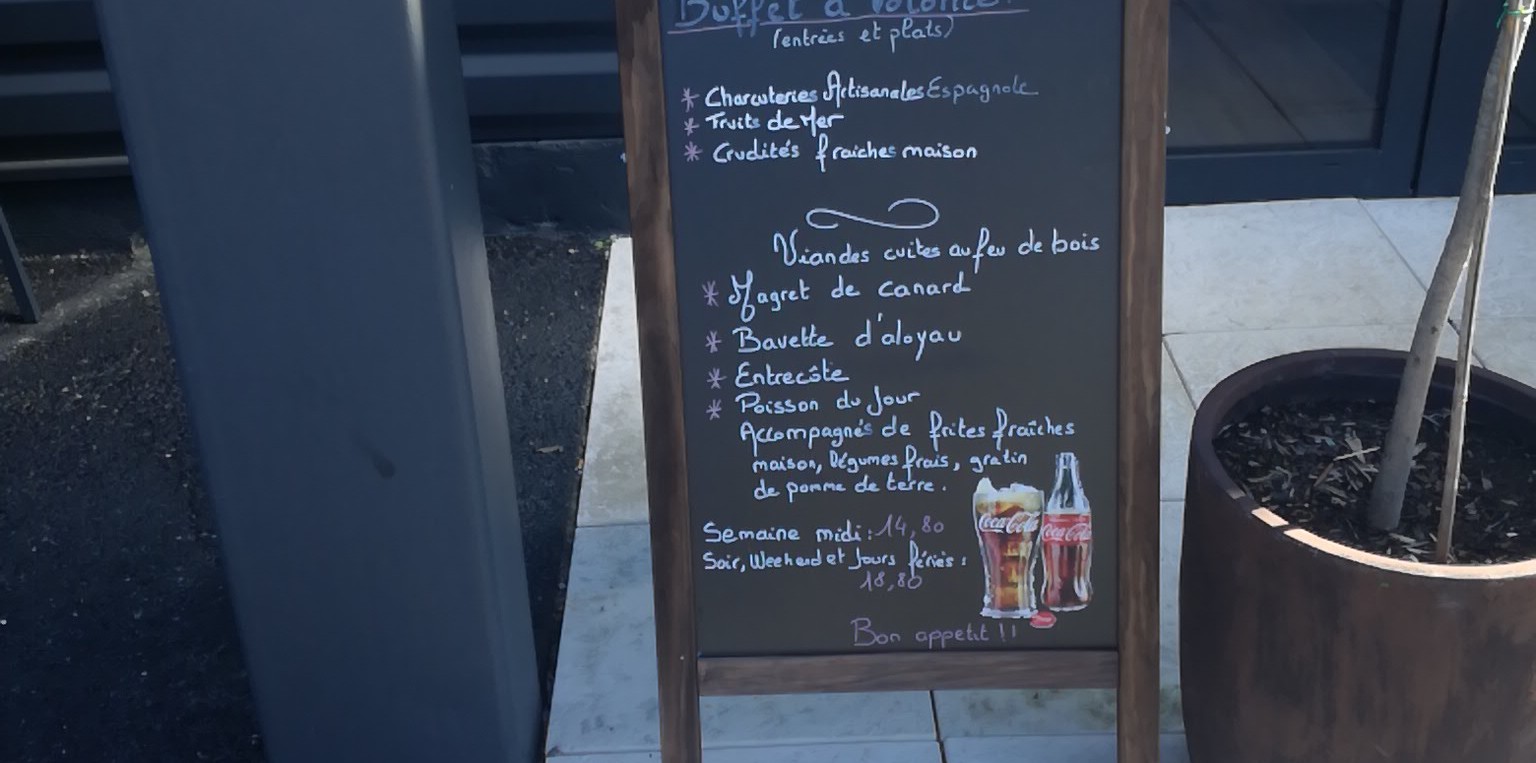 Buffet à volonté!
(entrées et plats)
* Charcuteries Artisanales Espagnole
* Fruits de Mer
* Crudités fraiches maison
Viandes cuites au feu de bois
* Magret de canard
* Bavette d'aloyau
* Entrecôte
* Poisson du Jour
Accompagnés de frites fraîches
maison, légumes frais, gratin
de pomme de terre.
Semaine midi: 14,80
Soir, Weekend et Jours fériés :
18,80
Coca-Cola
Coca-Cola
Bon appetit !!